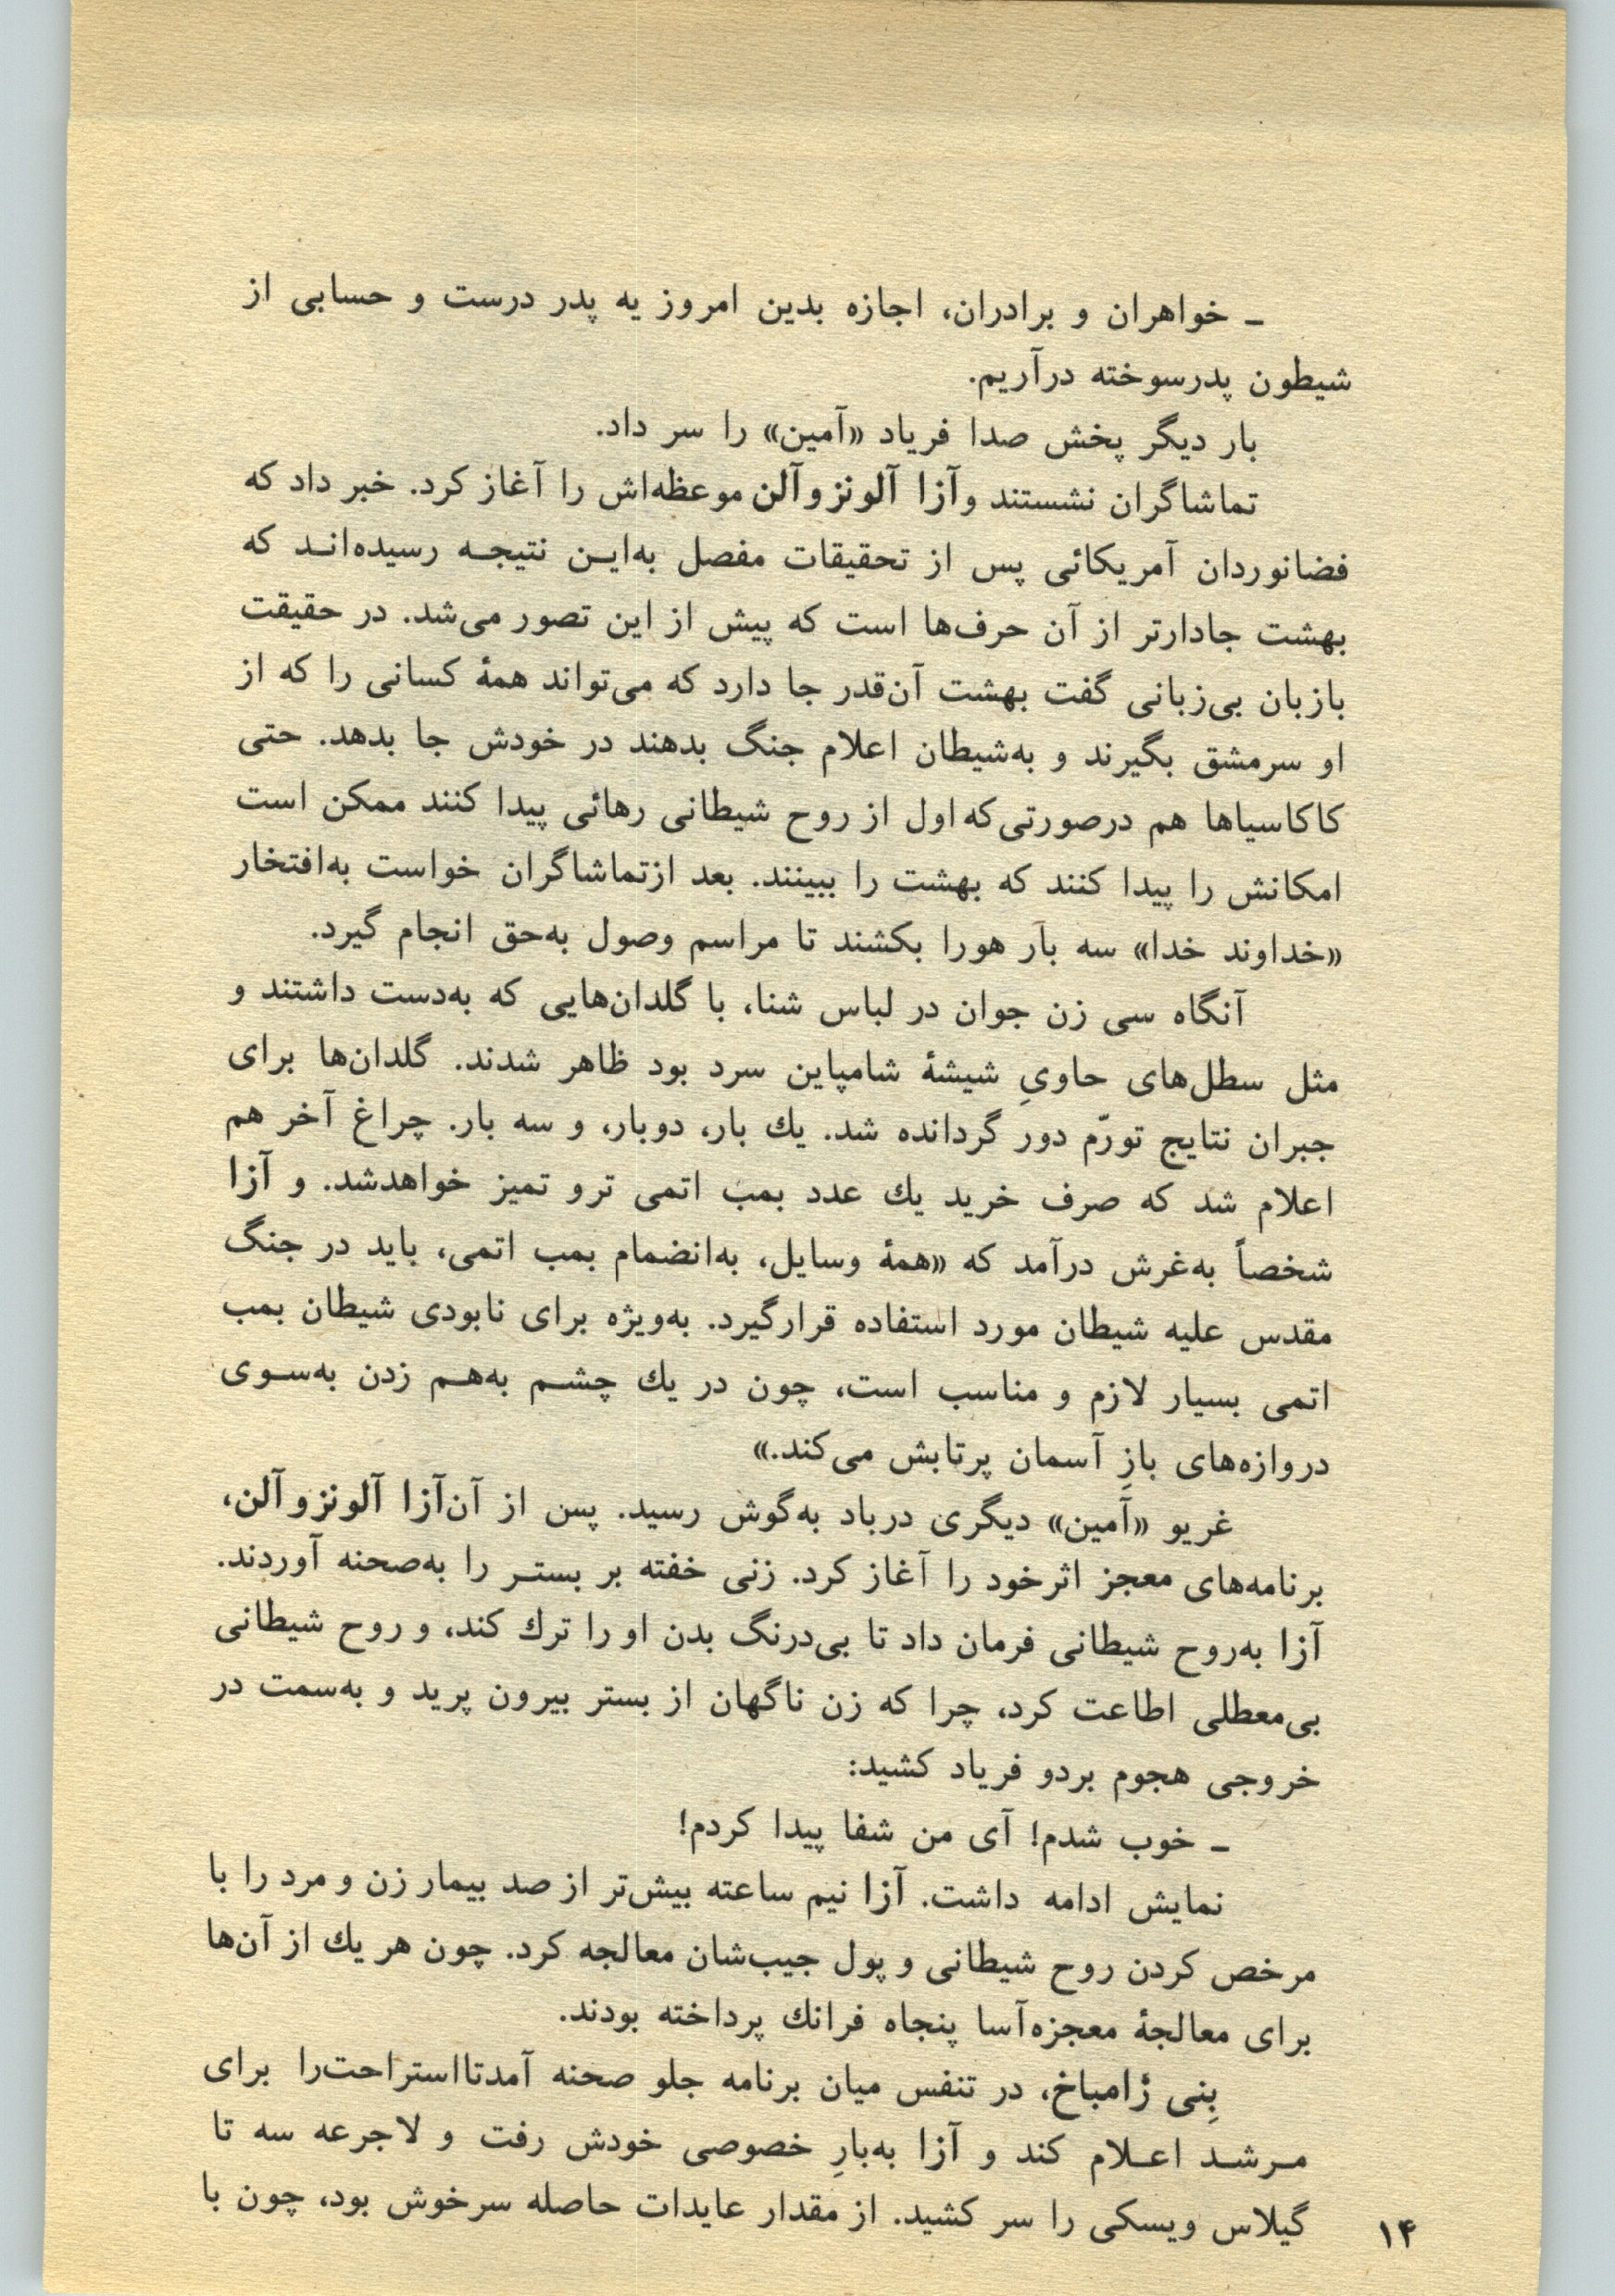 ـ خواهران و برادران، اجازه بدین امروز یه پدر درست و حسابی از
شیطون پدرسوخته درآریم.
بار دیگر پخش صدا فریاد «آمین» را سر داد.
تماشاگران نشستند و آزا آلونزو آلن موعظه‌اش را آغاز کرد. خبر داد که
فضانوردان آمریکائی پس از تحقیقات مفصل به‌این نتیجه رسیده‌اند که
بهشت جادارتر از آن حرف‌ها است که پیش از این تصور می‌شد. در حقیقت
بازبان بی‌زبانی گفت بهشت آن‌قدر جا دارد که می‌تواند همهٔ کسانی را که از
او سرمشق بگیرند و به‌شیطان اعلام جنگ بدهند در خودش جا بدهد. حتی
کاکاسیاها هم درصورتی‌که اول از روح شیطانی رهائی پیدا کنند ممکن است
امکانش را پیدا کنند که بهشت را ببینند. بعد ازتماشاگران خواست به‌افتخار
«خداوند خدا» سه بار هورا بکشند تا مراسم وصول به‌حق انجام گیرد.
آنگاه سی زن جوان در لباس شنا، با گلدان‌هایی که به‌دست داشتند و
مثل سطل‌های حاویِ شیشهٔ شامپاین سرد بود ظاهر شدند. گلدان‌ها برای
جبران نتایج تورّم دور گردانده شد. یك بار، دوبار، و سه بار. چراغ آخر هم
اعلام شد که صرف خرید یك عدد بمب اتمی ترو تمیز خواهدشد. و آزا
شخصاً به‌غرش درآمد که «همهٔ وسایل، به‌انضمام بمب اتمی، باید در جنگ
مقدس علیه شیطان مورد استفاده قرارگیرد. به‌ویژه برای نابودی شیطان بمب
اتمی بسیار لازم و مناسب است، چون در یك چشم به‌هم زدن به‌سوی
دروازه‌های بازِ آسمان پرتابش می‌کند.»
غریو «آمین» دیگری درباد به‌گوش رسید. پس از آن‌آزا آلونزو آلن،
برنامه‌های معجز اثرخود را آغاز کرد. زنی خفته بر بستر را به‌صحنه آوردند.
آزا به‌روح شیطانی فرمان داد تا بی‌درنگ بدن او را ترك کند، و روح شیطانی
بی‌معطلی اطاعت کرد، چرا که زن ناگهان از بستر بیرون پرید و به‌سمت در
خروجی هجوم بردو فریاد کشید:
ـ خوب شدم! آی من شفا پیدا کردم!
نمایش ادامه داشت. آزا نیم ساعته بیش‌تر از صد بیمار زن و مرد را با
مرخص کردن روح شیطانی و پول جیب‌شان معالجه کرد. چون هر یك از آن‌ها
برای معالجهٔ معجزه‌آسا پنجاه فرانك پرداخته بودند.
بِنی ژامباخ، در تنفس میان برنامه جلو صحنه آمدتااستراحت‌را برای
مرشد اعلام کند و آزا به‌بارِ خصوصی خودش رفت و لاجرعه سه تا
گیلاس ویسکی را سر کشید. از مقدار عایدات حاصله سرخوش بود، چون با
۱۴